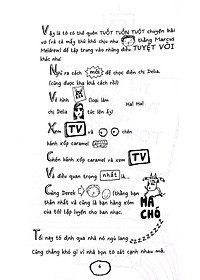 Vậy là tớ có thể quên TUỐT TUỒN TUỘT chuyện hồi
và trả cả mấy thứ khó chịu như thằng Marcus
Meldrew! để tập trung vào những điều TUYỆT VỜI
khác như:
Nghĩ ra cách mới để chọc điếm chị Delia.
(cũng được kha khá cách rồi!)
Vẽ hình (loại làm Ha! Ha!
chị Delia tức lên ấy!)
Xem TV và chén
bánh xốp caramel
Chén bánh xốp caramel và xem TV
Và điều quan trọng nhất là...
Cùng Derek (thằng bạn
thân nhất và cũng là bạn hàng xóm
của tớ) tập luyện cho ban nhạc.
MA CHÓ
Tối nay tớ định qua nhà nó ngủ lang
Cũng chẳng khó gì vì nhà bọn tớ sát cạnh nhau mà.
4